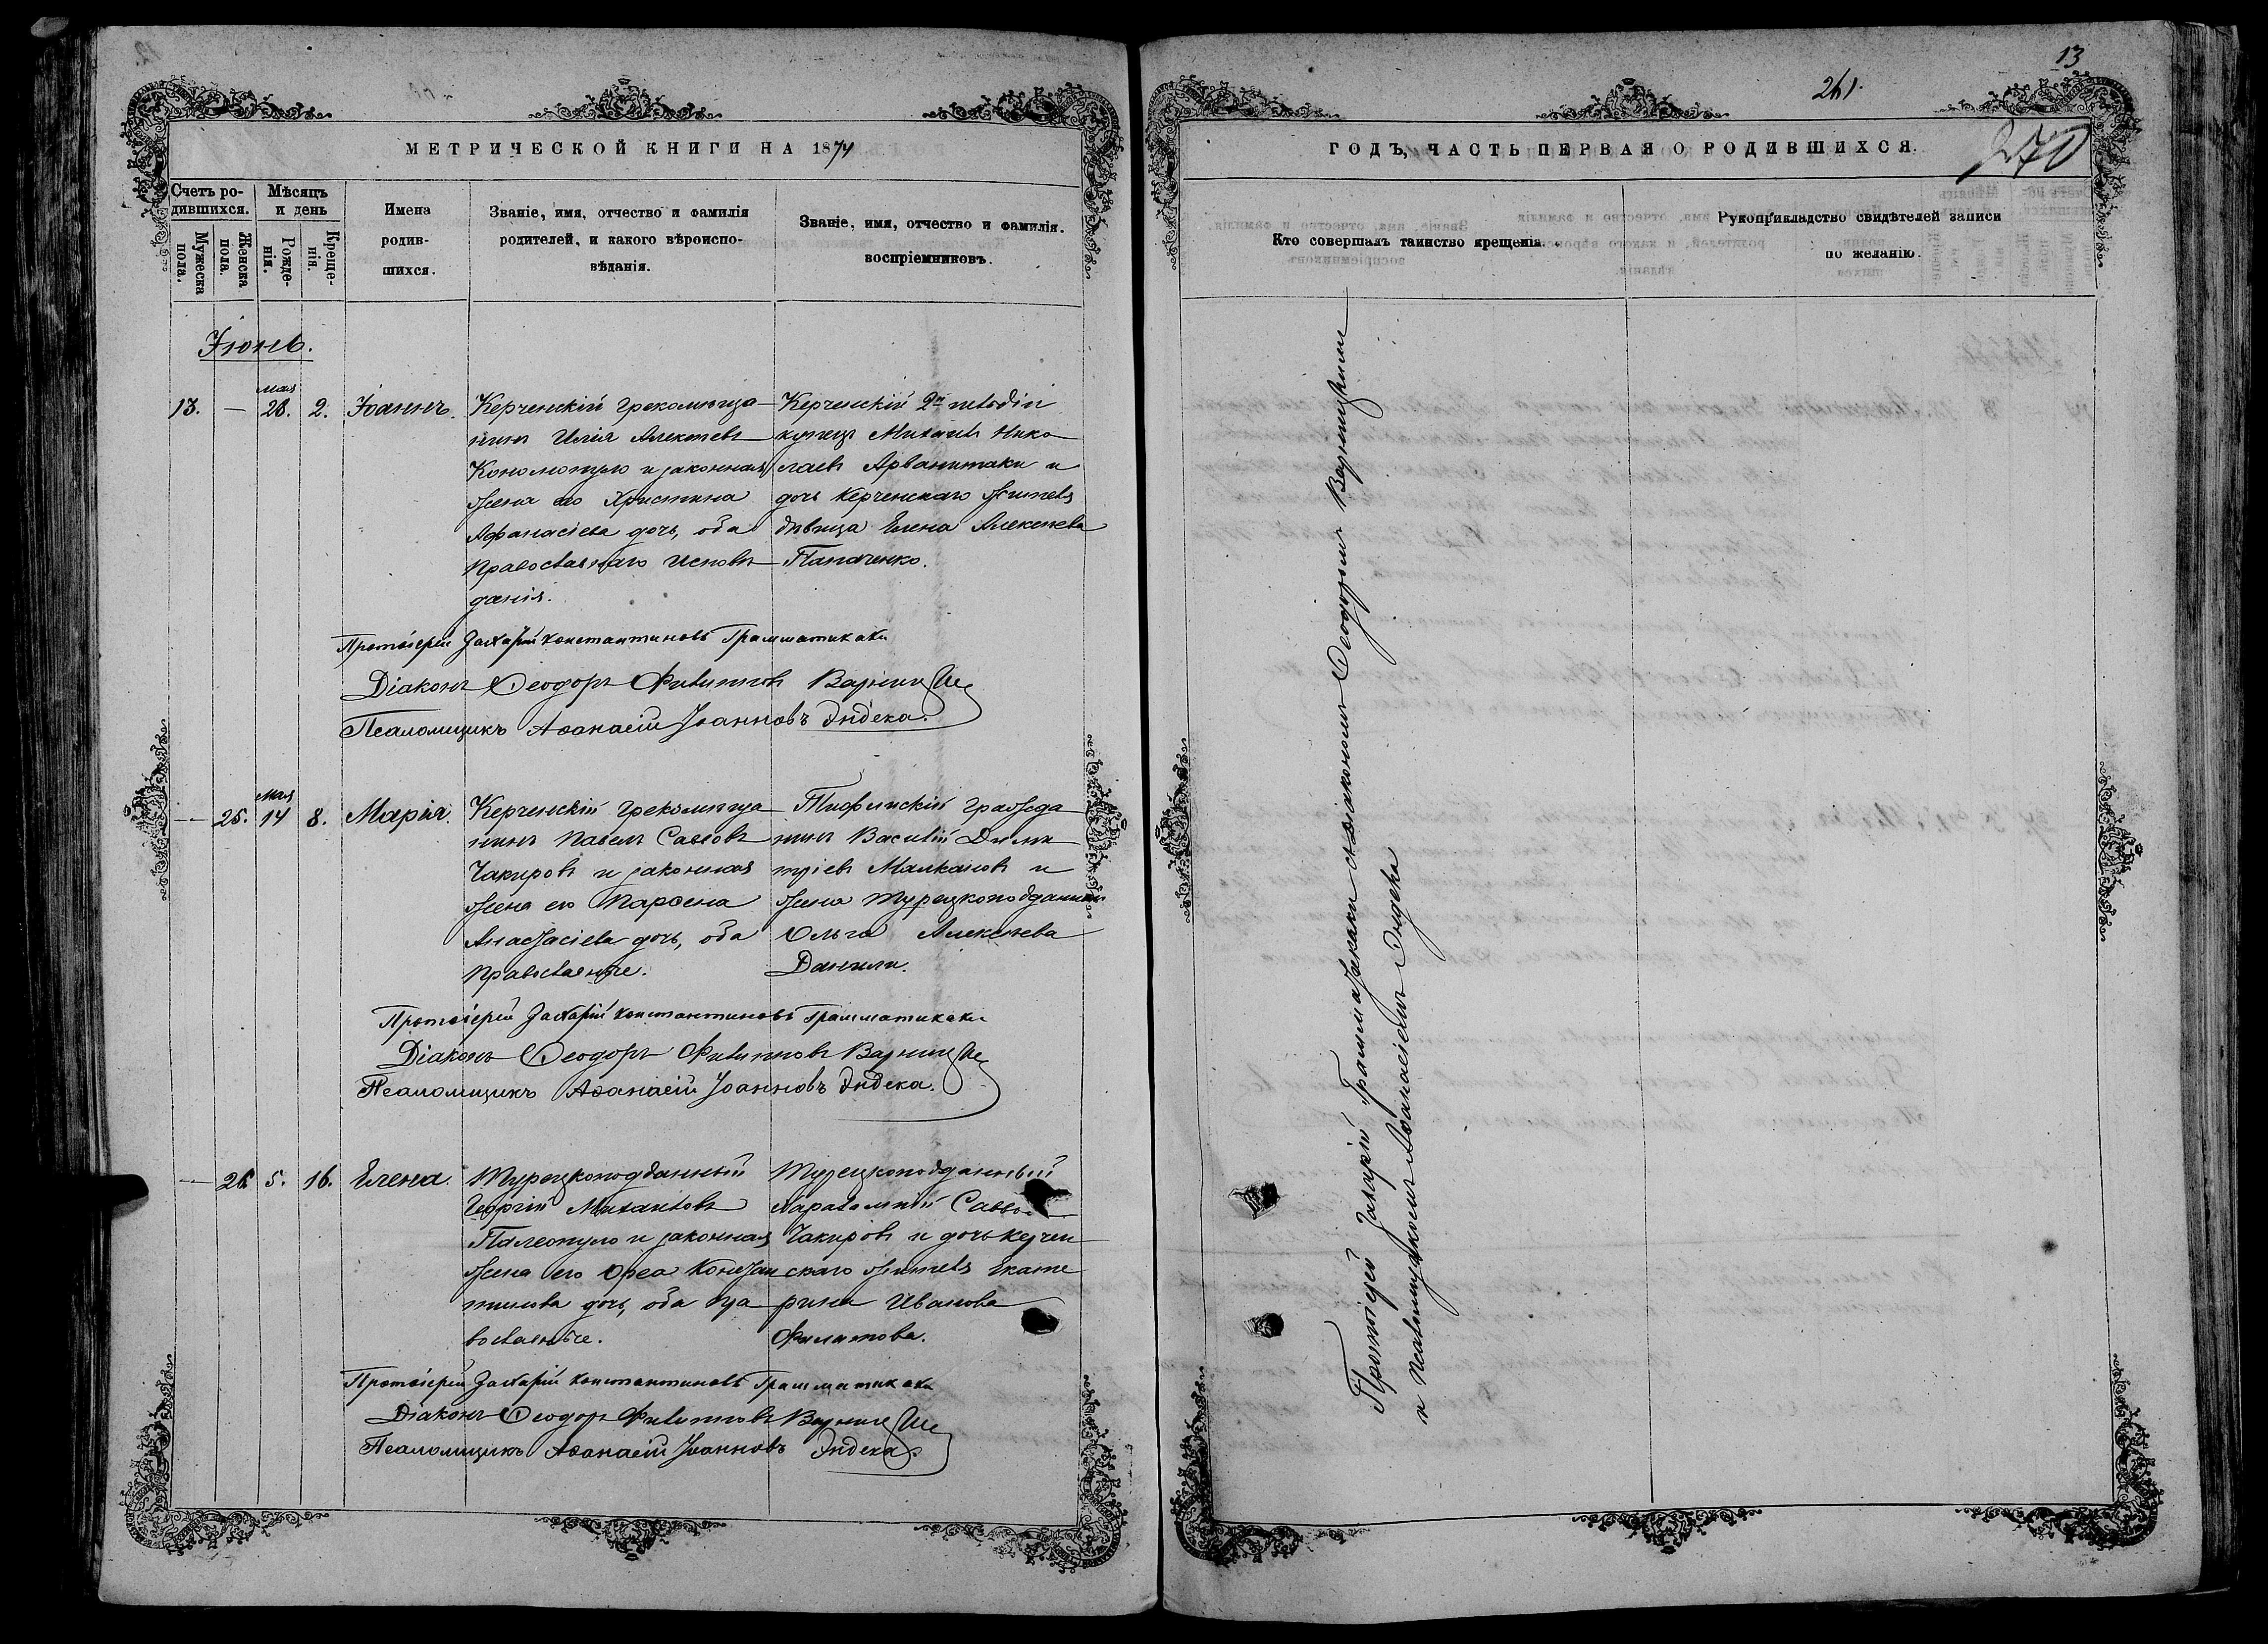 МЕТРИЧЕСКОЙ КНИГИ НА 1874
Счетъ родившихся.
Мѣсяцъ и день
Мужеска пола.
Женска пола.
Рожденія.
Крещенія.
Имена родившихся.
Званіе, имя, отчество и фамилія
родителей, и какого вѣроиспо-
вѣданія.
Званіе, имя, отчество и фамилія.
воспріемниковъ.
Іюнь.
13. — мая 28. 2. Іоаннъ.
Керченскій грекомѣща
нинъ Илія Алексѣевъ
Кономопуло и законная
жена его Христина
Афанасіева дочь, оба
православнаго исповѣ
данія.
Керченскій 2й гильдіи
купецъ Михаилъ Нико
лаевъ Арванитаки и
дочь Керченскаго жителя
дѣвица Елена Алексѣева
Папаченко.
Протоіерей Захарій Константиновъ Грамматикаки
Діаконъ Ѳеодоръ Филипповъ
Псаломщикъ Аѳанасій Іоанновъ Эндека.
— 25. мая 14 8. Марія.
Керченскій грекомѣща
нинъ Павелъ Саввовъ
Чакировъ и законная
жена его Парѳена
Анастасіева дочь, оба
православные.
Тифлискій гражда
нинъ Василій Дими
тріевъ Малкановъ и
жена турецкоподданнаго
Ольга Алексѣева
Данили.
Протоіерей Захарій Константиновъ Грамматикаки
Діаконъ Ѳеодоръ Филипповъ
Псаломщикъ Аѳанасій Іоанновъ Эндека.
— 26. 5. 16. Елена.
Турецкоподданный
Георгій Михайловъ
Палеопуло и законная
жена его Ѳреа Констан
тинова дочь, оба пра
вославные.
Турецкоподданный
Харалампій
Чакировъ и дочь керчен
скаго жителя Екате
рина Иванова
Филатова.
Протоіерей Захарій Константиновъ Грамматикаки
Діаконъ Ѳеодоръ Филипповъ
Псаломщикъ Аѳанасій Іоанновъ Эндека.
13
261.
270
ГОДЪ, ЧАСТЬ ПЕРВАЯ О РОДИВШИХСЯ.
Кто совершалъ таинство крещенія.
Рукоприкладство свидѣтелей записи
по желанію.
Протоіерей Захарій Грамматикаки съ діакономъ Ѳеодоромъ Варницкимъ
и псаломщикомъ Аѳанасіемъ Эндека